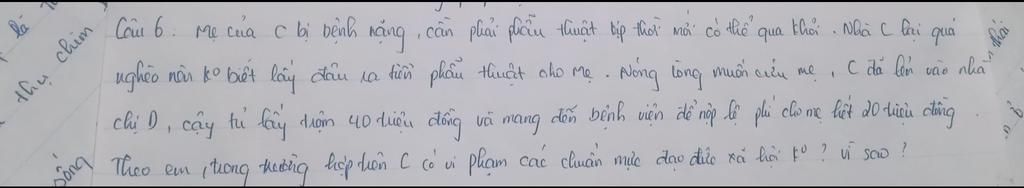 Câu 6: Mẹ của C bị bệnh nặng, cần phải phẫu thuật kịp thời mới có thể qua khỏi. Nhà C lại quá
nghèo nên ko biết lấy đâu ra tiền phẫu thuật cho mẹ. Nóng lòng muốn cứu mẹ, C đã lẻn vào nhà
chị D, cậy tủ lấy trộm 40 triệu đồng và mang đến bệnh viện để nộp lệ phí cho mẹ hết 20 triệu đồng.
Theo em, trong trường hợp trên C có vi phạm các chuẩn mực đạo đức xã hội ko? vì sao?
là
thụ chiêm
sống